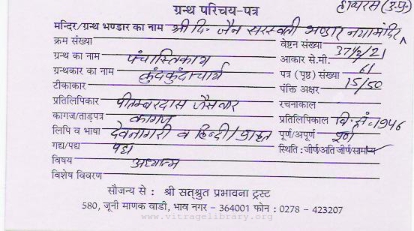 ग्रन्थ परिचय-पत्र
हाथरस (उ.प्र.)
मन्दिर/ग्रन्थ भण्डार का नाम श्री दि. जैन सरस्वती भण्डार नयामंदिर
क्रम संख्या वेष्टन संख्या 37/2/21
ग्रन्थ का नाम पंचास्तिकाय आकार से.मी.
ग्रन्थकार का नाम कुंदकुंदाचार्य पत्र (पृष्ठ) संख्या 61
टीकाकार पंक्ति अक्षर 15/50
प्रतिलिपिकार पीतम्बरदास जैसवाल रचनाकाल
कागज/ताड़पत्र कागज प्रतिलिपिकाल वि.सं.=1946
लिपि व भाषा देवनागरी व हिन्दी/प्राकृत पूर्ण/अपूर्ण पूर्ण
गद्य/पद्य पद्य स्थिति : जीर्ण/अति जीर्ण/सामान्य
विषय अध्यात्म
विशेष विवरण
सौजन्य से : श्री सत्श्रुत प्रभावना ट्रस्ट
580, जूनी माणक वाडी, भाव नगर - 364001 फोन : 0278 - 423207
www.vitragelibrary.org